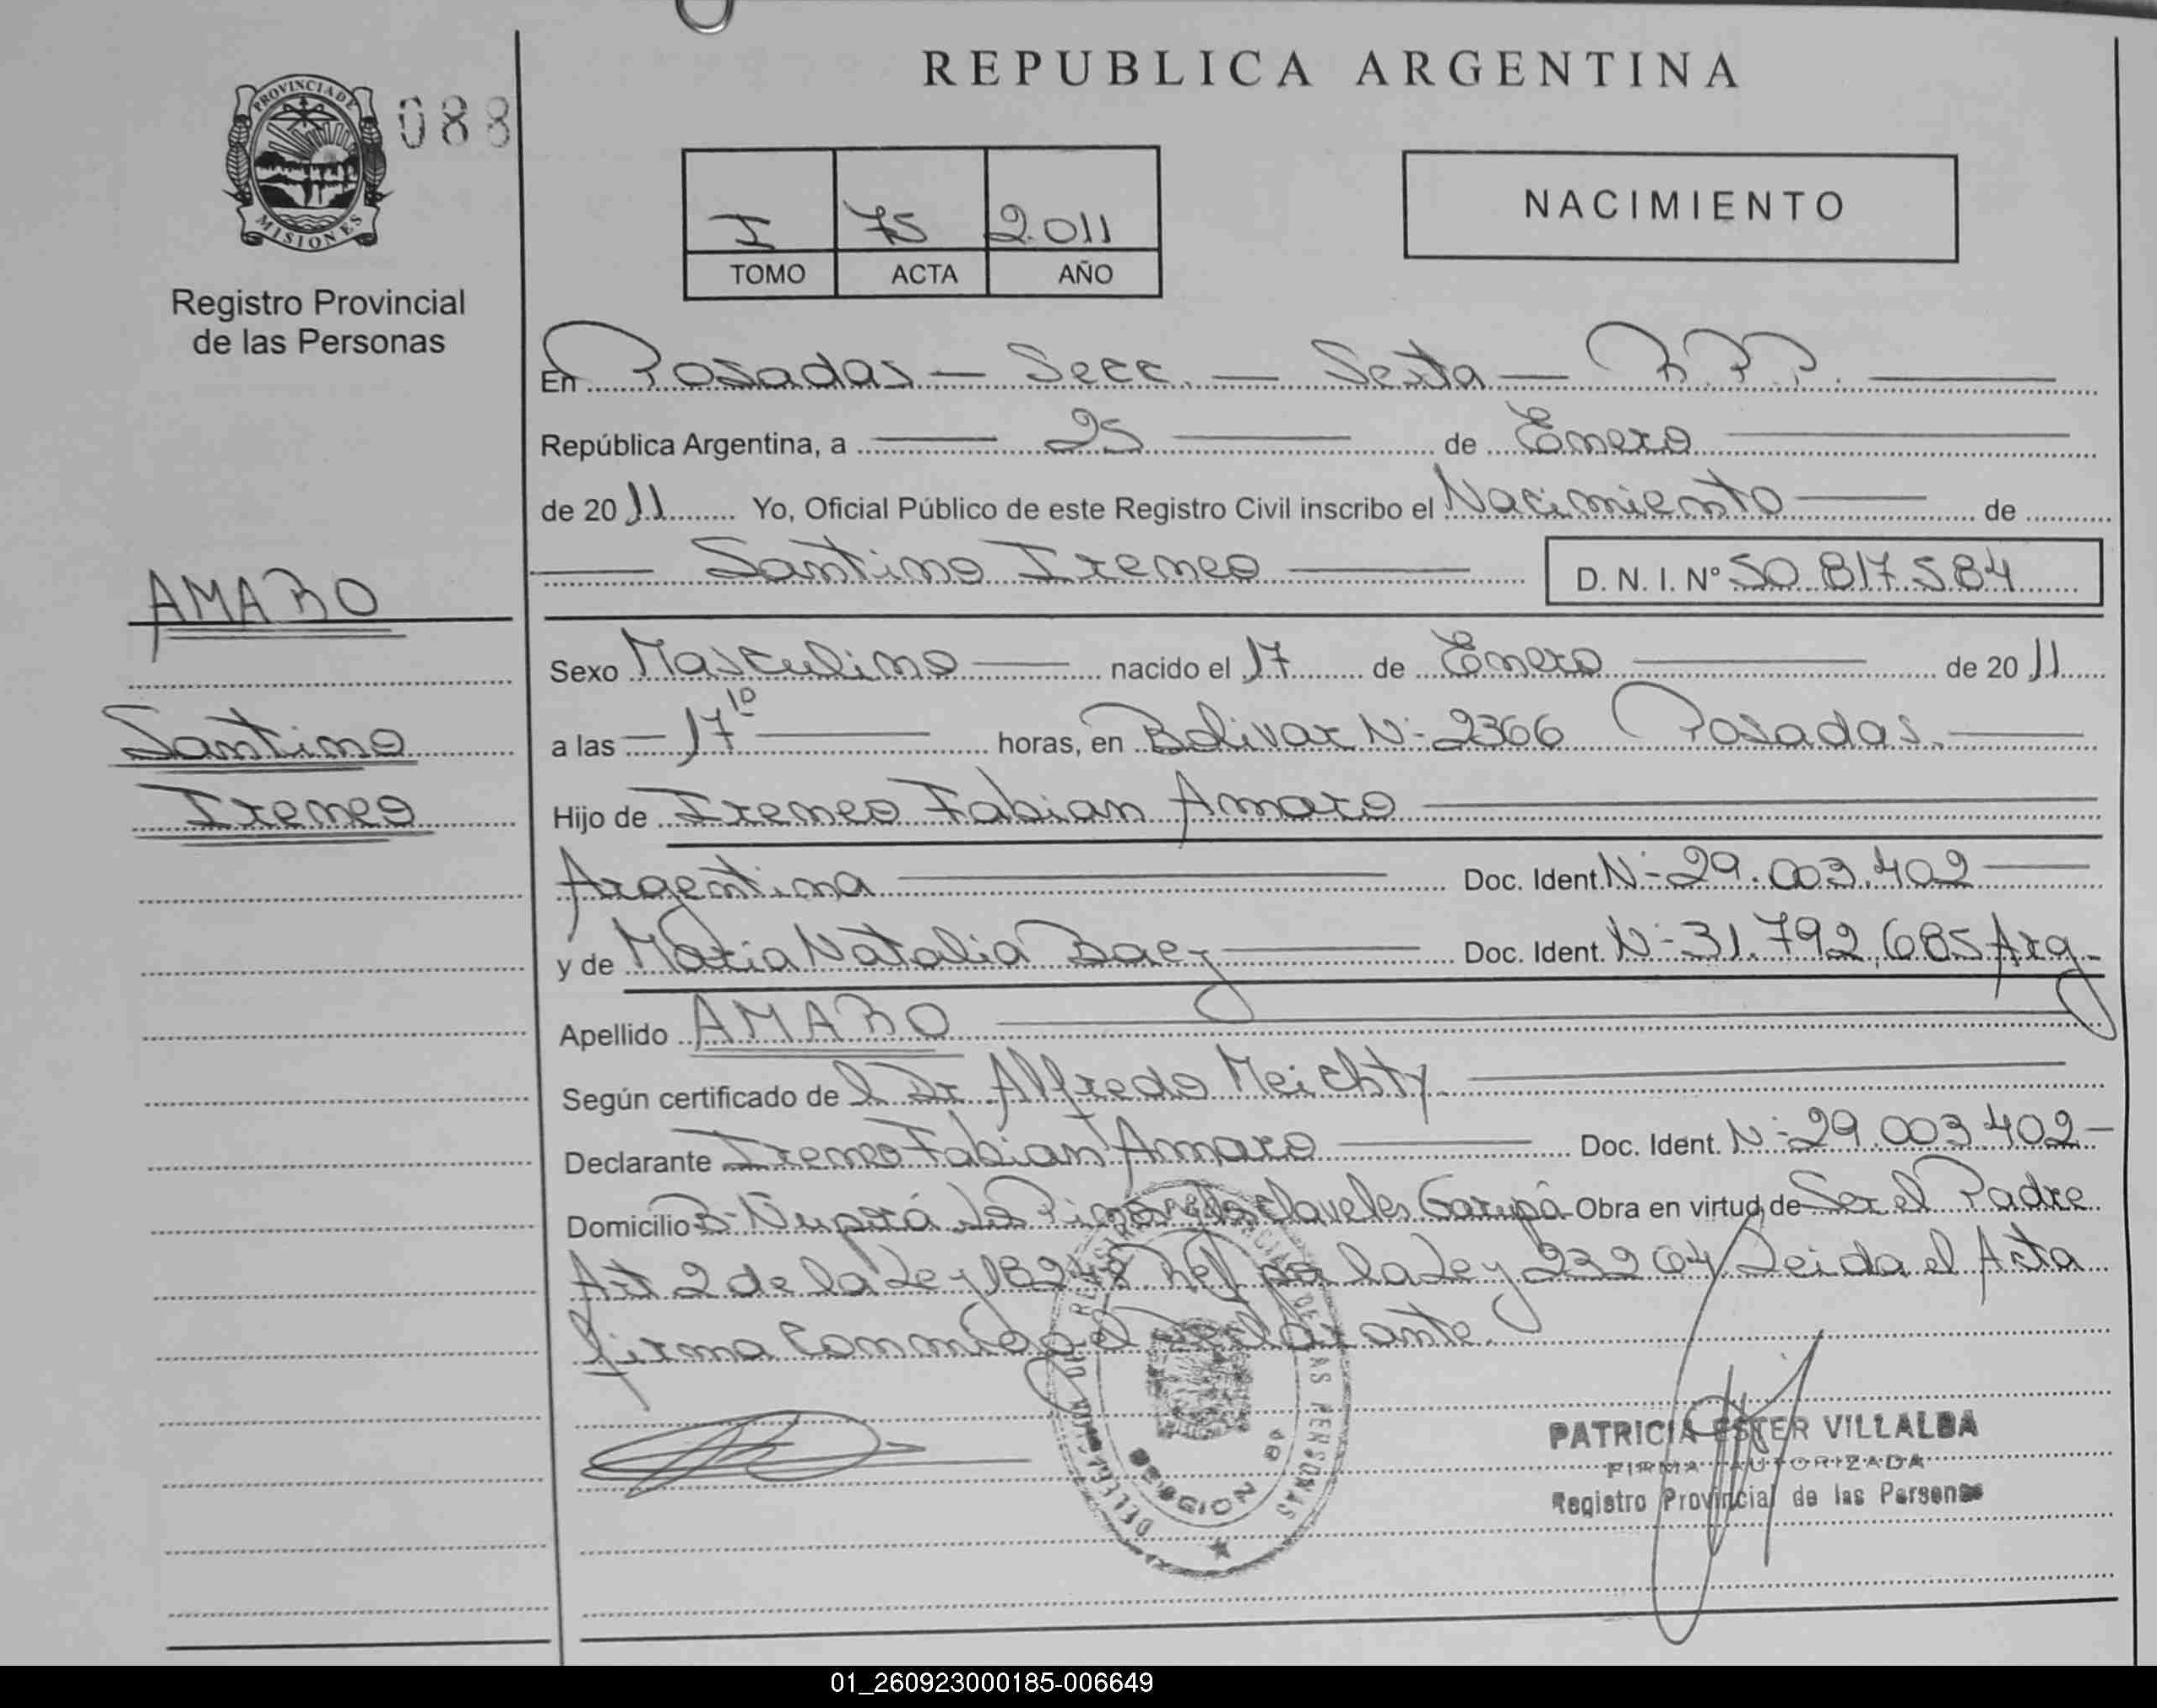 REPUBLICA ARGENTINA
PROVINCIA DE MISIONES
088
Registro Provincial
de las Personas
I 75 2.011
TOMO ACTA AÑO
NACIMIENTO
En Posadas — Secc. — Sexta — R.P.P.
República Argentina, a 25 de Enero
de 2011 Yo, Oficial Público de este Registro Civil inscribo el Nacimiento de
Santino Ireneo D. N. I. Nº 50.817.584
AMARO
Santino
Ireneo
Sexo Masculino nacido el 17 de Enero de 2011
a las 17 10 horas, en Bolivar Nº 2366 Posadas.
Hijo de Ireneo Fabian Amaro
Argentina Doc. Ident. Nº 29.003.402
y de Maria Natalia Baez Doc. Ident. Nº 31.792.685 Arg
Apellido AMARO
Según certificado de l Dr Alfredo Meichty
Declarante Ireneo Fabian Amaro Doc. Ident. Nº 29.003.402
Domicilio Claveles Garupá Obra en virtud de Ser el Padre
Art 2 de la Ley 18248 Ref por la Ley 23264 Leida el Acta
firma conmigo el declarante.
REGISTRO PROVINCIAL DE LAS PERSONAS
DELEGACION
PATRICIA ESTER VILLALBA
FIRMA AUTORIZADA
Registro Provincial de las Personas
01_260923000185-006649